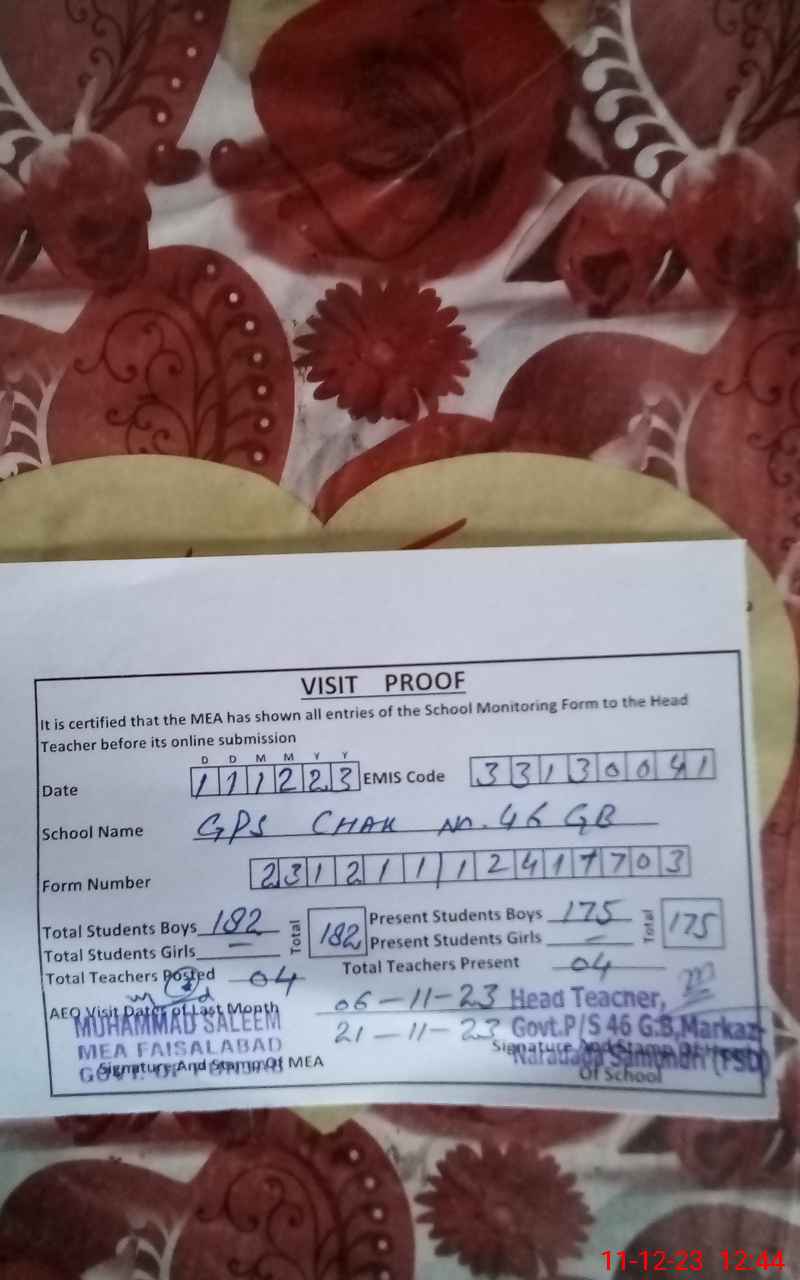 VISIT PROOF
It is certified that the MEA has shown all entries of the School Monitoring Form to the Head
Teacher before its online submission
D D M M Y Y
Date 111223 EMIS Code 33130041
School Name GPS CHAK No. 46 GB
Form Number 23121112417703
Total Students Boys 182 Total 182 Present Students Boys 175 Total 175
Total Students Girls — Present Students Girls —
Total Teachers Posted 04 Total Teachers Present 04
AEO Visit Dates of Last Month 06-11-23
21-11-23
MUHAMMAD SALEEM
MEA FAISALABAD
GOVT. OF
Signature And Stamp Of MEA
Head Teacher,
Govt.P/S 46 G.B,Markaz
(FSD)
Signature And Stamp Of
Of School
11-12-23 12:44